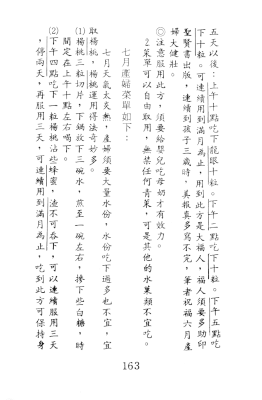 五天以後:上午十點吃下龍眼十粒。下午二點吃下十粒。下午五點吃
下十粒。可連續用到滿月為止,用到此方是大福人,福人須要多助印
聖賢書出版,連續到孩子三歲時,美報真多寫不完,筆者祝福六月產
婦大健壯。
◎注意服用此方,須要給嬰兒吃母奶才有效力。
2.菜單可以自由取用,無禁任何青菜,可是其他的水菓類不宜吃。
七月產婦菜單如下:
七月天氣太炎熱,產婦須要大量水份,水份吃下過多也不宜,宜
取楊桃,楊桃運用得法奇妙多。
(1)楊桃三粒切片,下鍋放下三碗水,煎至一碗左右,摻下些白糖,時
間定在上午十點左右喝下。
(2)下午四點吃下一粒楊桃沾些蜂蜜,渣不可吞下,可以連續服用三天
,停兩天,再服用三天,可連續用到滿月為止,吃到此方可保持身
163